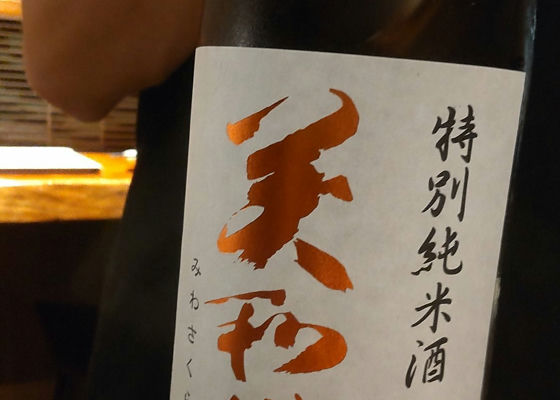 特別純米酒
美和
みわさくら